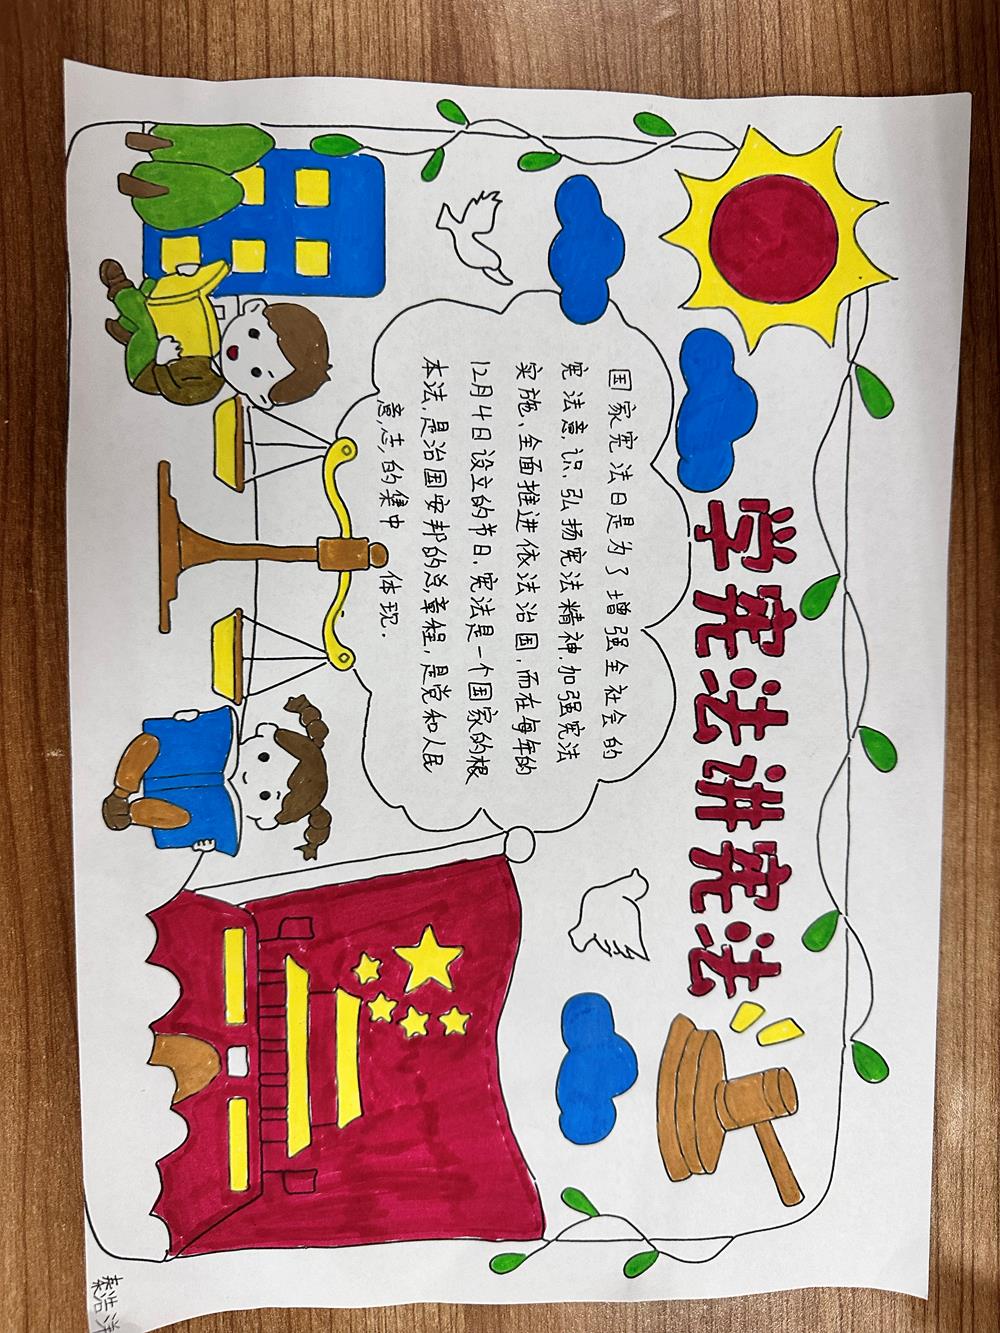 学宪法讲宪法
国家宪法日是为了增强全社会的
宪法意识,弘扬宪法精神,加强宪法
实施、全面推进依法治国,而在每年的
12月4日设立的节日,宪法是一个国家的根
本法,是治国安邦的总章程,是党和人民
意志的集中 体现.